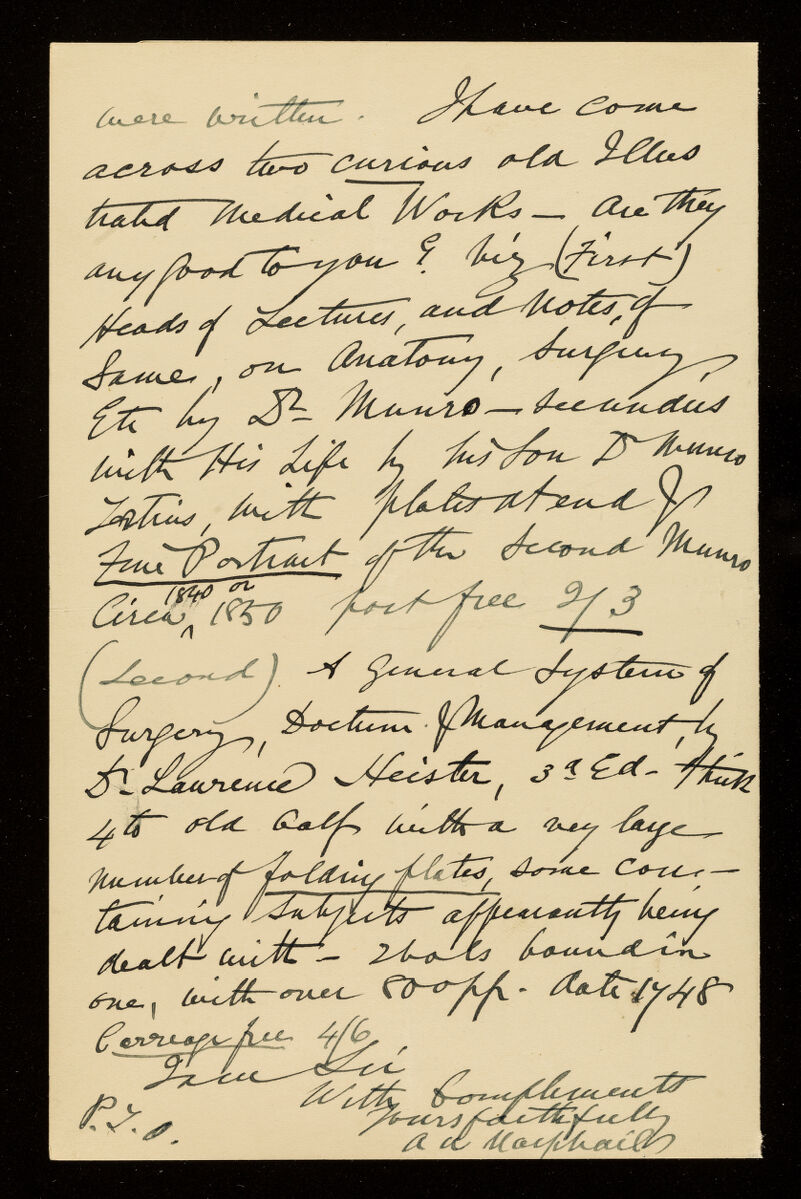 were written. I have come
across two curious old Illus
trated Medical Works – Are they
any good to you? viz (First)
Heads of Lectures, and Notes, of
Same, on Anatomy, Surgery,
Etc by Dr. Munro – secundus
with His Life by his Son Dr Munro
Tertius, with plates at end &
Fine Portrait of the Second Munro
1840 or
Circa 1850 post free 2/3
(Second). A General System of
Surgery, Doctrine & Management, by
Dr. Laurence Heister, 3d Ed – Thick
4to old Calf with a very large
number of folding plates, some con –
taining Subjects appearantly being
dealt with – 2 vols bound in
one, with over 800 pp. Date 1748
Carreage free 4/6
I am Sir
With Compliments
Yours faithfully
P.T.O.